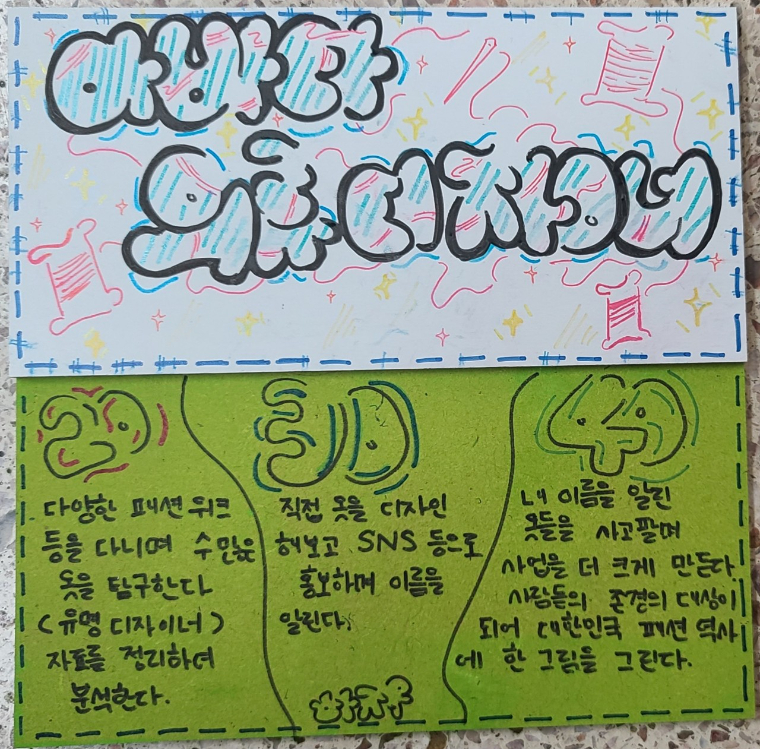 의류 디자이너
2D
다양한 패션 위크
등을 다니며 수많은
옷을 탐구한다
(유명 디자이너)
자료를 정리하여
분석한다.
3D
직접 옷을 디자인
해보고 SNS 등으로
홍보하며 이름을
알린다.
4D
내 이름을 알린
옷들을 사고팔며
사업을 더 크게 만든다
사람들의 존경의 대상이
되어 대한민국 패션 역사
에 한 그림을 그린다.